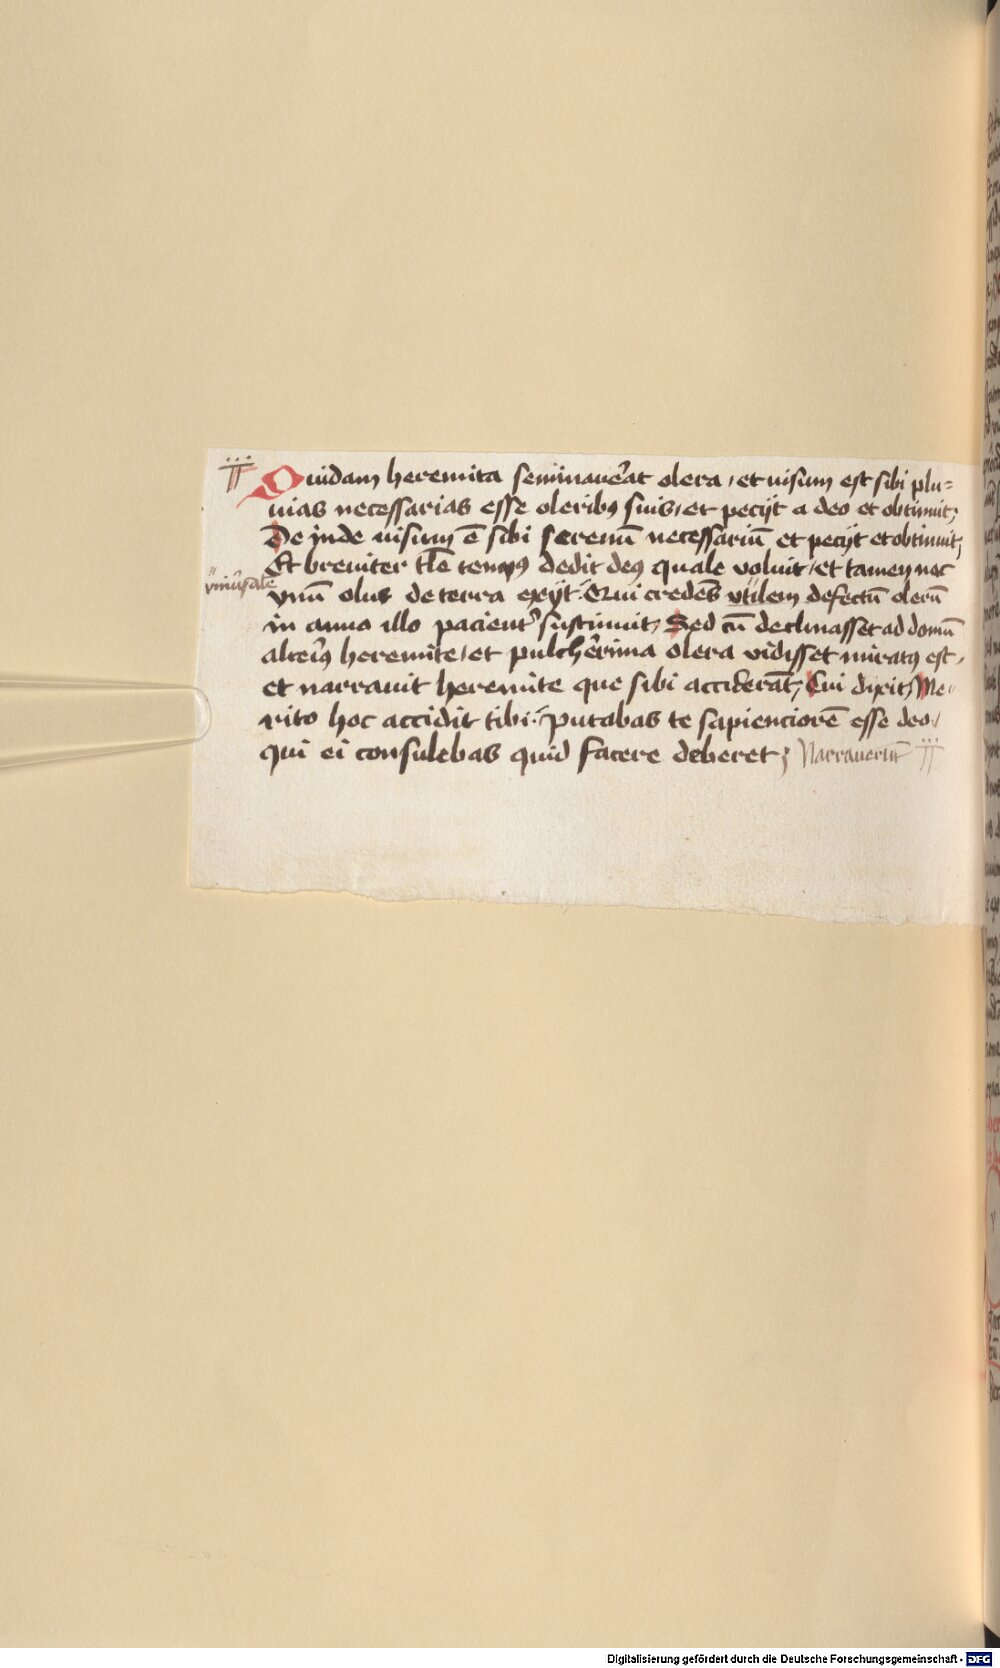 Quidam heremita seminaue᷑at olera / et uisum est sibi plu=
uias necessarias esse oleribꝰ suis / et pecijt a deo et obtinuit;
De jnde uisum ē sibi serenū necessariū et pecijt et obtinuit;
Et breuiter tl̄e tempꝰ dedit deꝰ quale voluit / et tamen nec
vniūsale
vnū olus de terra exijt. Qui credēs vtilem defectū olerū
in anno illo pacient᷑ sustinuit / Sed cū declinasset ad domū
alteriꝰ heremite / et pulche᷑rima olera vidisset miratꝰ est /
et narrauit heremite que sibi acciderāt; Cui dixit / Me-
rito hoc accidit tibi / putabas te sapienciorē esse deo /
qui ei consulebas quid facere deberet; Narrauerūt
Digitalisierung gefördert durch die Deutsche Forschungsgemeinschaft - DFG